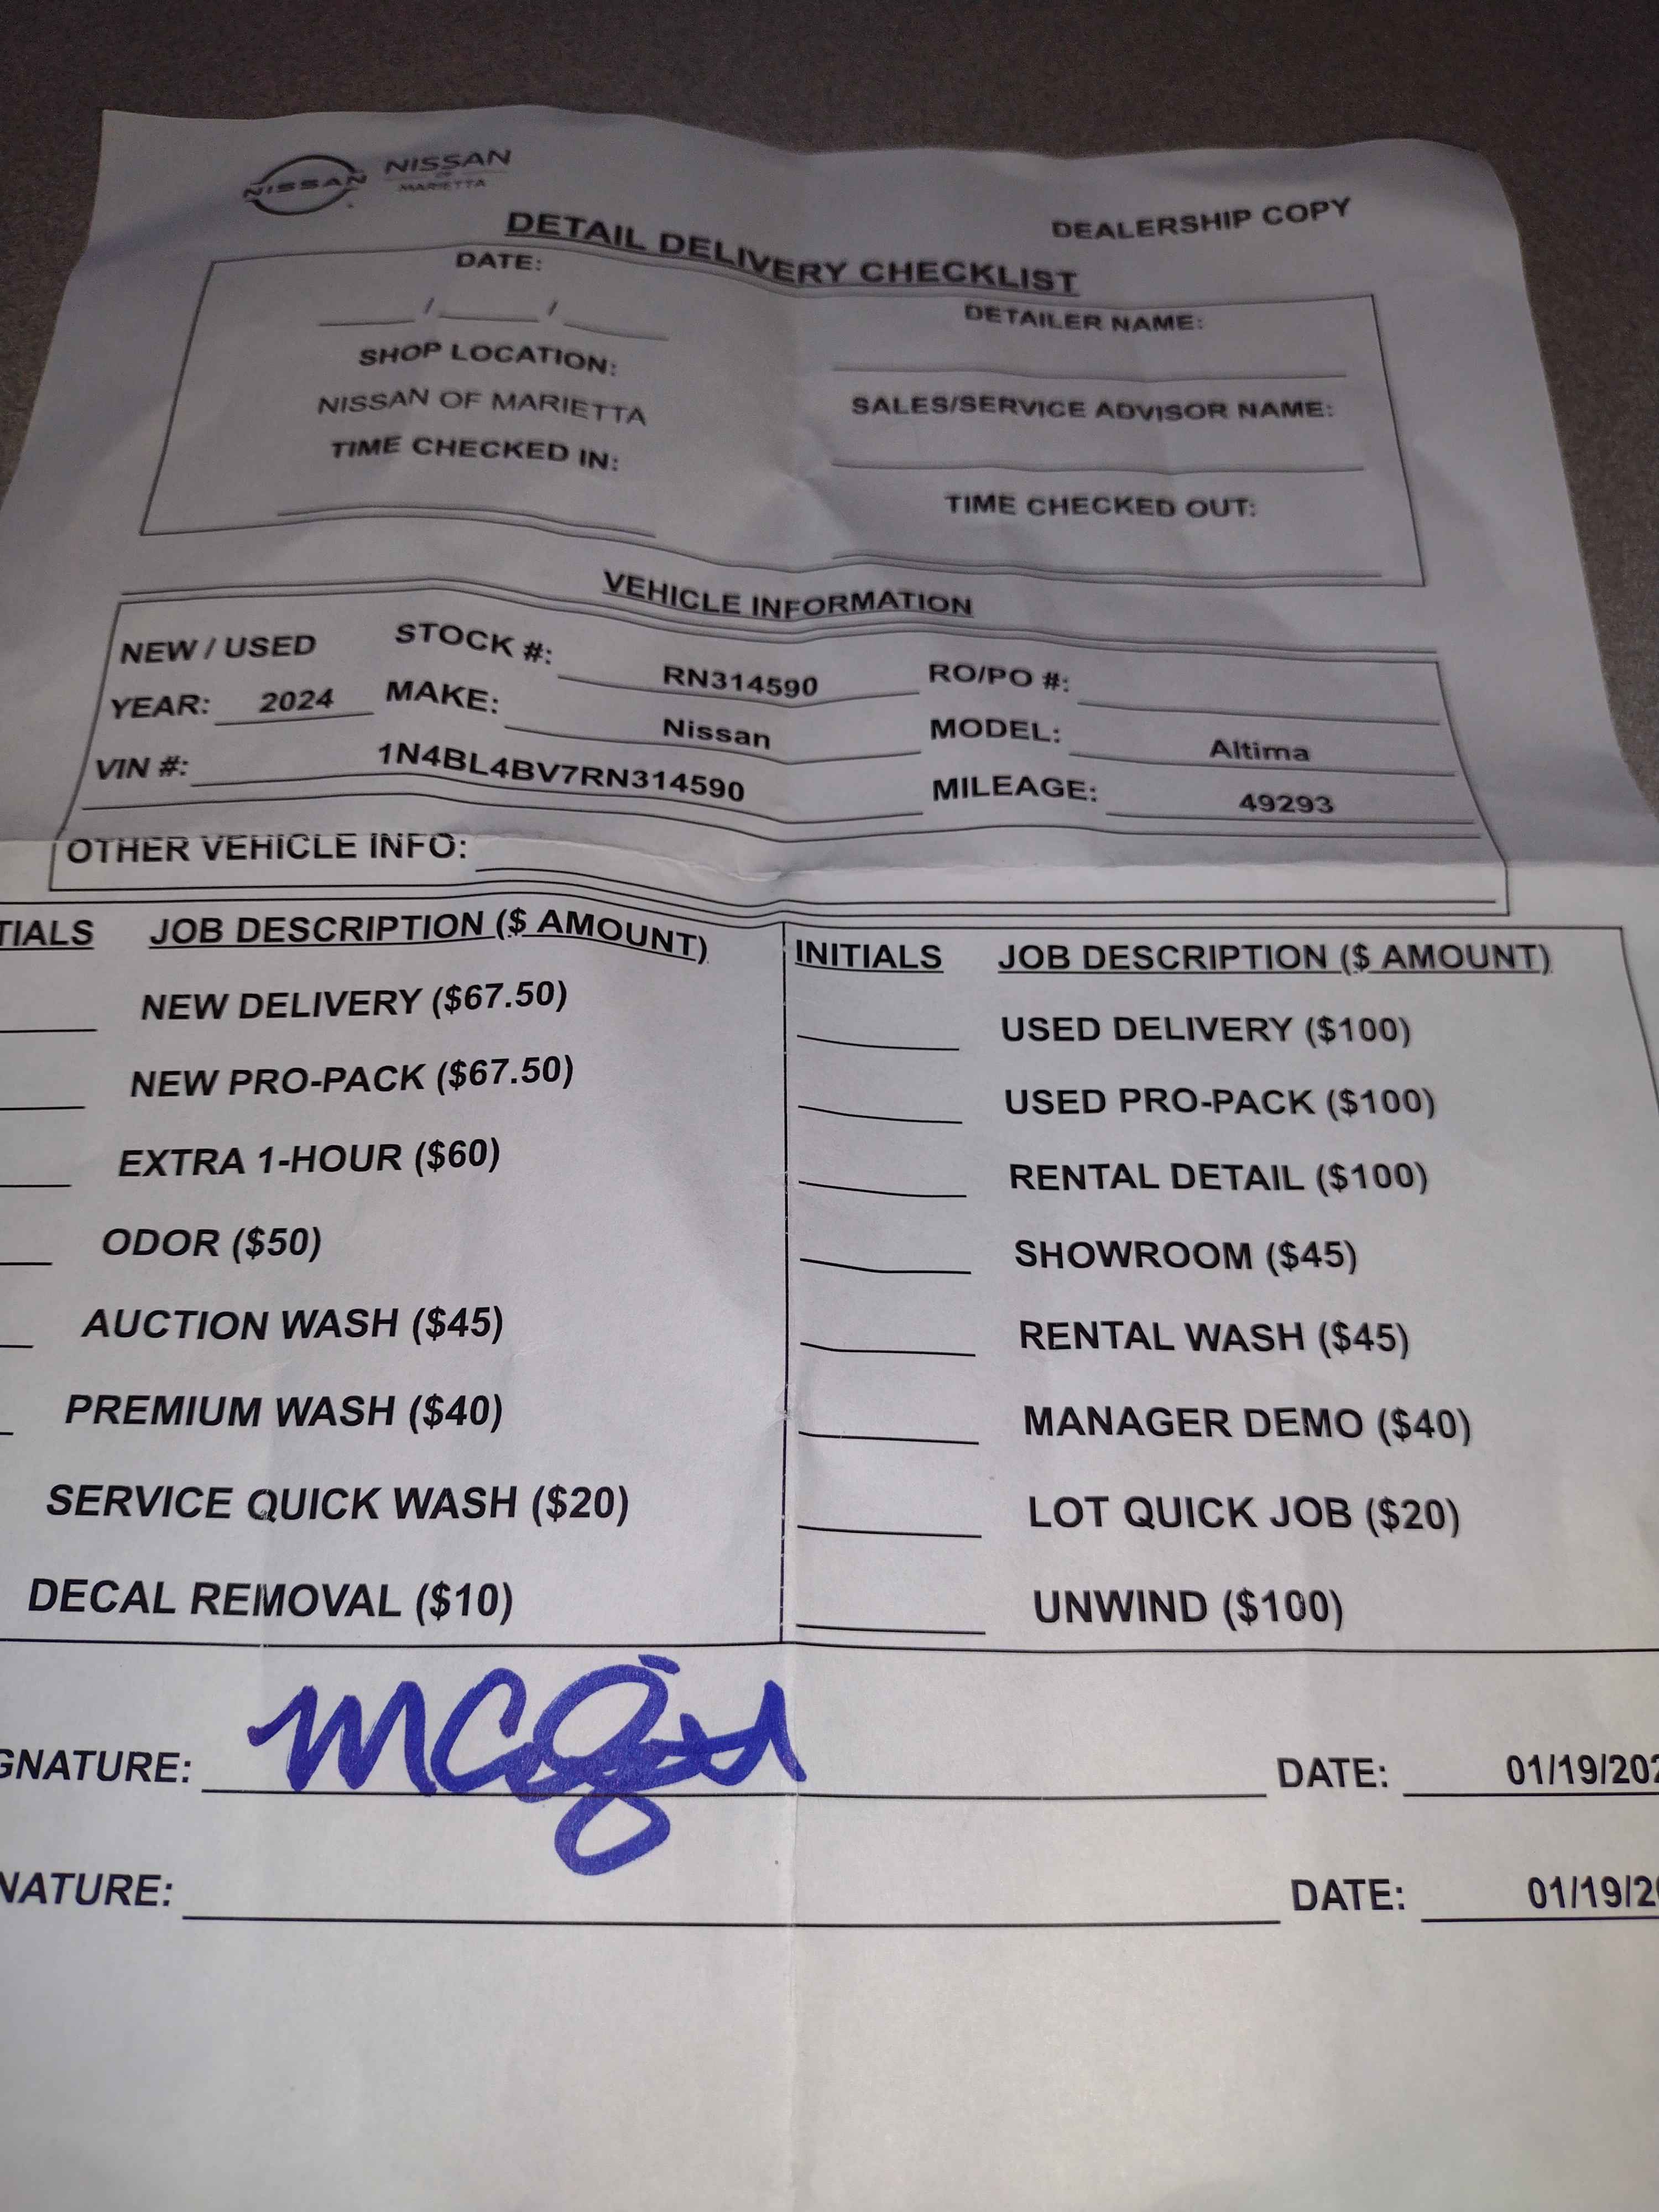 NISSAN NISSAN
OF
MARIETTA
DEALERSHIP COPY
DETAIL DELIVERY CHECKLIST
DATE:
/ /
DETAILER NAME:
SHOP LOCATION:
NISSAN OF MARIETTA
SALES/SERVICE ADVISOR NAME:
TIME CHECKED IN:
TIME CHECKED OUT:
VEHICLE INFORMATION
NEW / USED STOCK #: RN314590 RO/PO #:
YEAR: 2024 MAKE: Nissan MODEL: Altima
VIN #: 1N4BL4BV7RN314590 MILEAGE: 49293
OTHER VEHICLE INFO:
TIALS JOB DESCRIPTION ($ AMOUNT) INITIALS JOB DESCRIPTION ($ AMOUNT)
NEW DELIVERY ($67.50) USED DELIVERY ($100)
NEW PRO-PACK ($67.50) USED PRO-PACK ($100)
EXTRA 1-HOUR ($60) RENTAL DETAIL ($100)
ODOR ($50) SHOWROOM ($45)
AUCTION WASH ($45) RENTAL WASH ($45)
PREMIUM WASH ($40) MANAGER DEMO ($40)
SERVICE QUICK WASH ($20) LOT QUICK JOB ($20)
DECAL REMOVAL ($10) UNWIND ($100)
GNATURE: DATE: 01/19/202
NATURE: DATE: 01/19/20